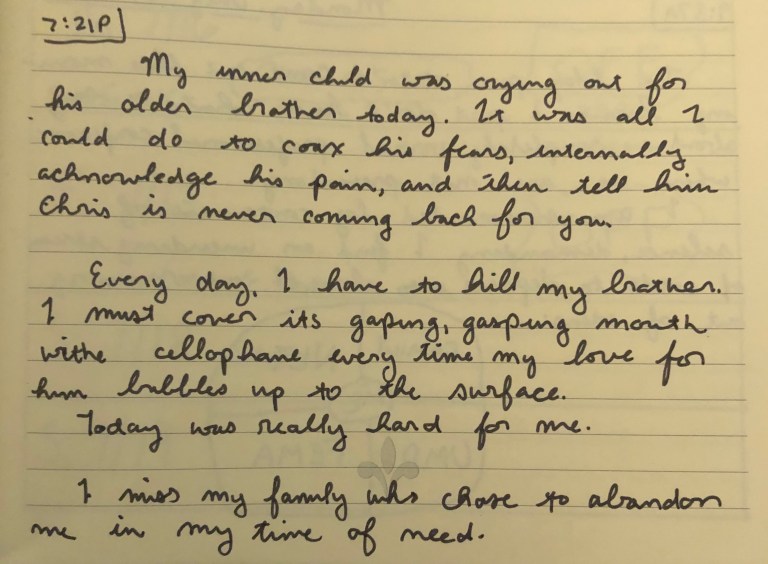 7:21P
My inner child was crying out for
his older brother today. It was all I
could do to coax his fears, internally
acknowledge his pain, and then tell him
Chris is never coming back for you.
Every day, I have to kill my brother.
I must cover its gaping, gasping mouth
withe cellophane every time my love for
him bubbles up to the surface.
Today was really hard for me.
I miss my family who chose to abandon
me in my time of need.